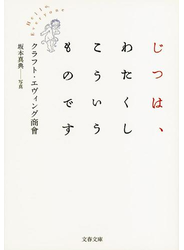 じつは、
わたくし
こういう
ものです
クラフト・エヴィング商會
坂本真典――写真
文春文庫